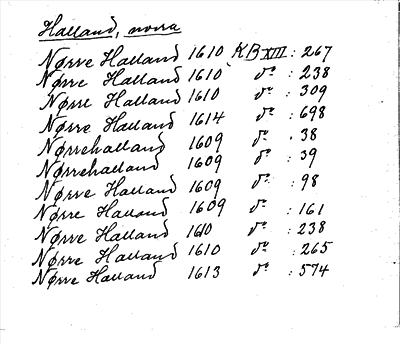 Halland, norra
Nørre Halland 1610 KB XIII : 267
Nørre Halland 1610 do : 238
Nørre Halland 1610 do : 309
Nørre Halland 1614 do : 698
Nørrehalland 1609 do . 38
Nørrehalland 1609 do : 39
Nørre Halland 1609 do : 98
Nørre Halland 1609 do : 161
Nørre Halland 1610 do : 238
Nørre Halland 1610 do : 265
Nørre Halland 1613 do : 574